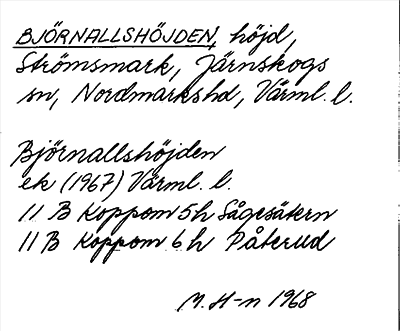 BJÖRNALLSHÖJDEN, höjd,
Strömsmark, Järnskogs
sn, Nordmarks hd, Värml. l.
Björnallshöjden
ek (1967) Värml. l.
11 B Koppom 5h Sågesätern
11 B Koppom 6h Påterud
M. H-n 1968